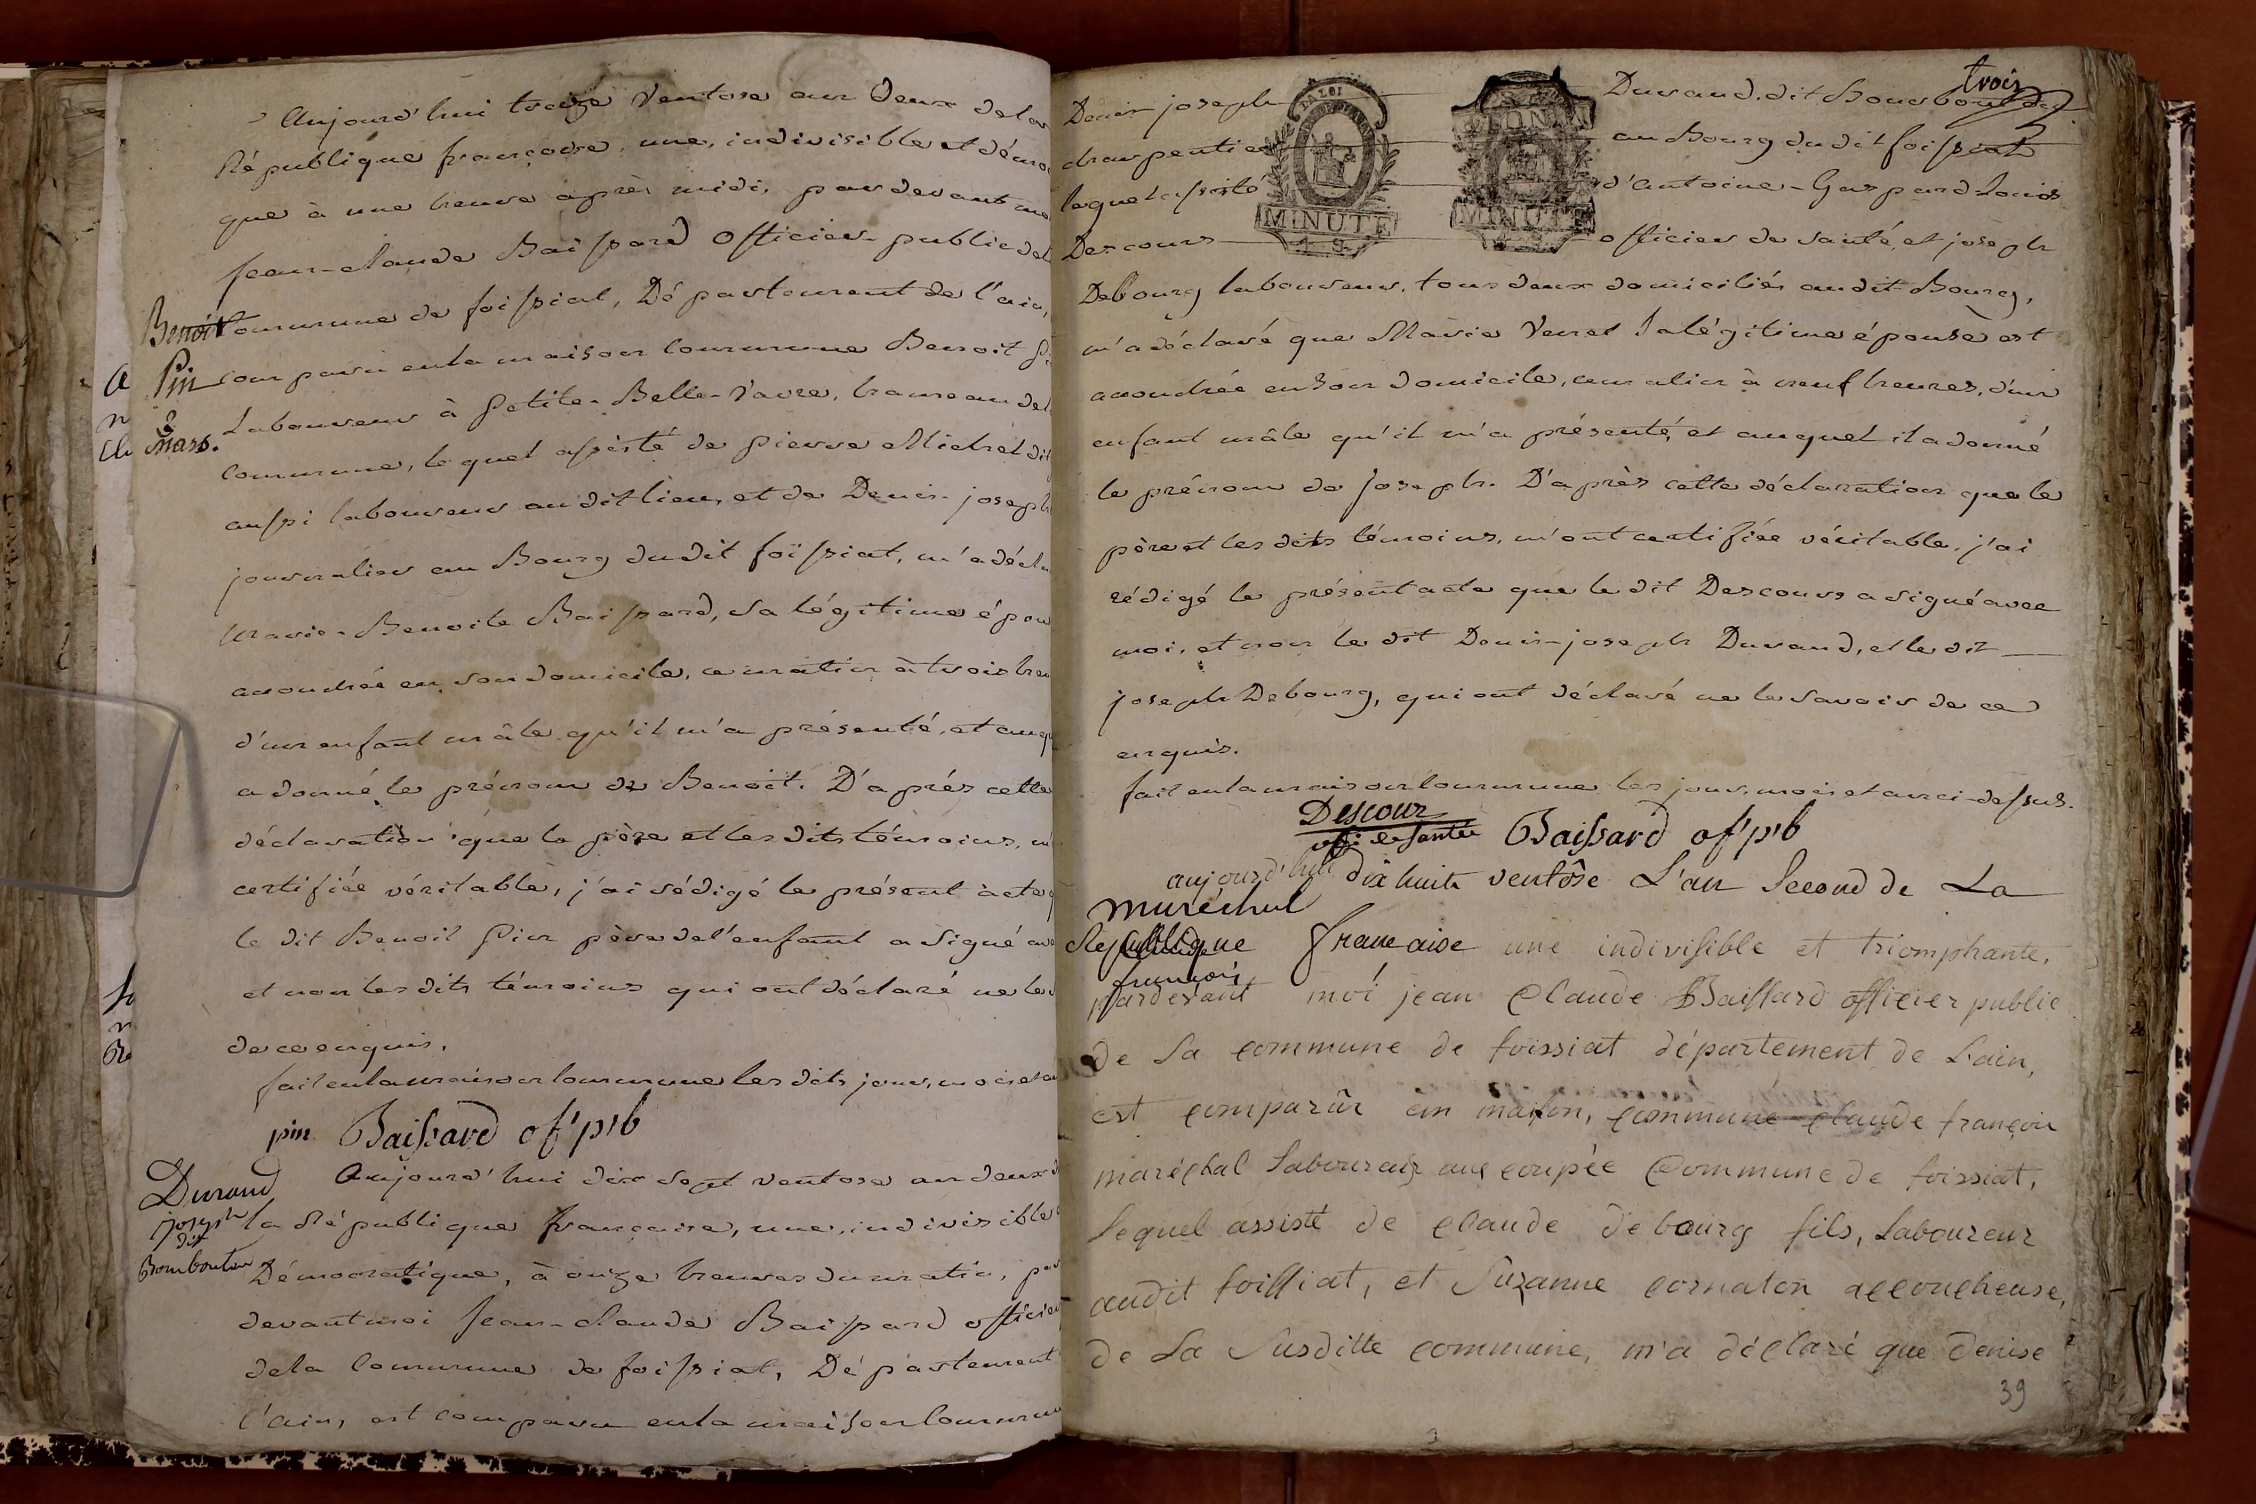 Aujourd'hui treize Ventose an Deux de la
République françoise, une, indivisible et démo
que à une heure après midi, par devant mo
Jean-claude Baissard officier public de l
Commune de foissiat, Département de l'ain,
comparu en la maison commune Benoit P
Laboureur à Petite-Belle-Vavre, hameau de
commune, lequel assisté de Pierre Michel dit
aussi laboureur au dit lieu, et de Denis-joseph
journalier au Bourg dudit foissiat, m'a décla
marie-Benoite Baissard, sa légitime épou
accouchée en son domicile, ce matin à trois heu
d'un enfant mâle qu'il m'a présenté, et auq
a donné le prénom de Benoit. D'après cette
déclaration que le père et les dits témoins, m
certifiée véritable, j'ai rédigé le présent acte q
le dit Benoit Pin père de l'enfant a signé ave
et non les dits témoins qui ont déclaré ne le s
de ce enquis.
fait en la maison commune les dits jour, mois et an
pin Baissard of' p'b
Benoit
Pin
mars.
Aujourd'hui dix sept ventose an deux d
la République française, une, indivisible
Démocratique, à onze heures du matin, par
devant moi Jean-claude Baissard officier
de la Commune de foissiat, Département
l'ain, est comparu en la maison commun
Durand
joseph
dit
Bombouton
trois
Denis-joseph Durand, dit Bourbon
charpentier au Bourg du dit foissiat
lequel assisté d'antoine-Gaspard Louis
Descours officier de santé, et joseph
LA LOI
MINUTE
MINUTE
Debourg laboureur, tous deux domiciliés audit Bourg,
m'a déclaré que Marie Veuret sa légitime épouse est
accouchée en son domicile, ce matin à neuf heures, d'un
enfant mâle qu'il m'a présenté, et auquel il a donné
le prénom de joseph. D'après cette déclaration que le
père et les dits témoins, m'ont certifiée véritable, j'ai
rédigé le présent acte que le dit Descours a signé avec
moi, et non le dit Denis-joseph Durand, et le dit
joseph Debourg, qui ont déclaré ne le savoir de ce
enquis.
fait en la maison commune les jour, mois et an ci-dessus.
Descour
offi de santée Baissard of' p'b
aujourd'huit dix huite ventôse L'an Second de La
Republique française une indivisible et triomphante,
pardevant moi jean Claude Baissard officier public
de La commune de foissiat département de L'ain,
est comparûr en maison, commune claude françois
maréchal Laboureur aux coupée Commune de foissiat,
lequel assisté de claude debourg fils, Laboureur
audit foissiat, et Suzanne cornaton accoucheuse,
de La Susditte commune, m'a déclaré que denise
muréchul
Claude
françois
39
3